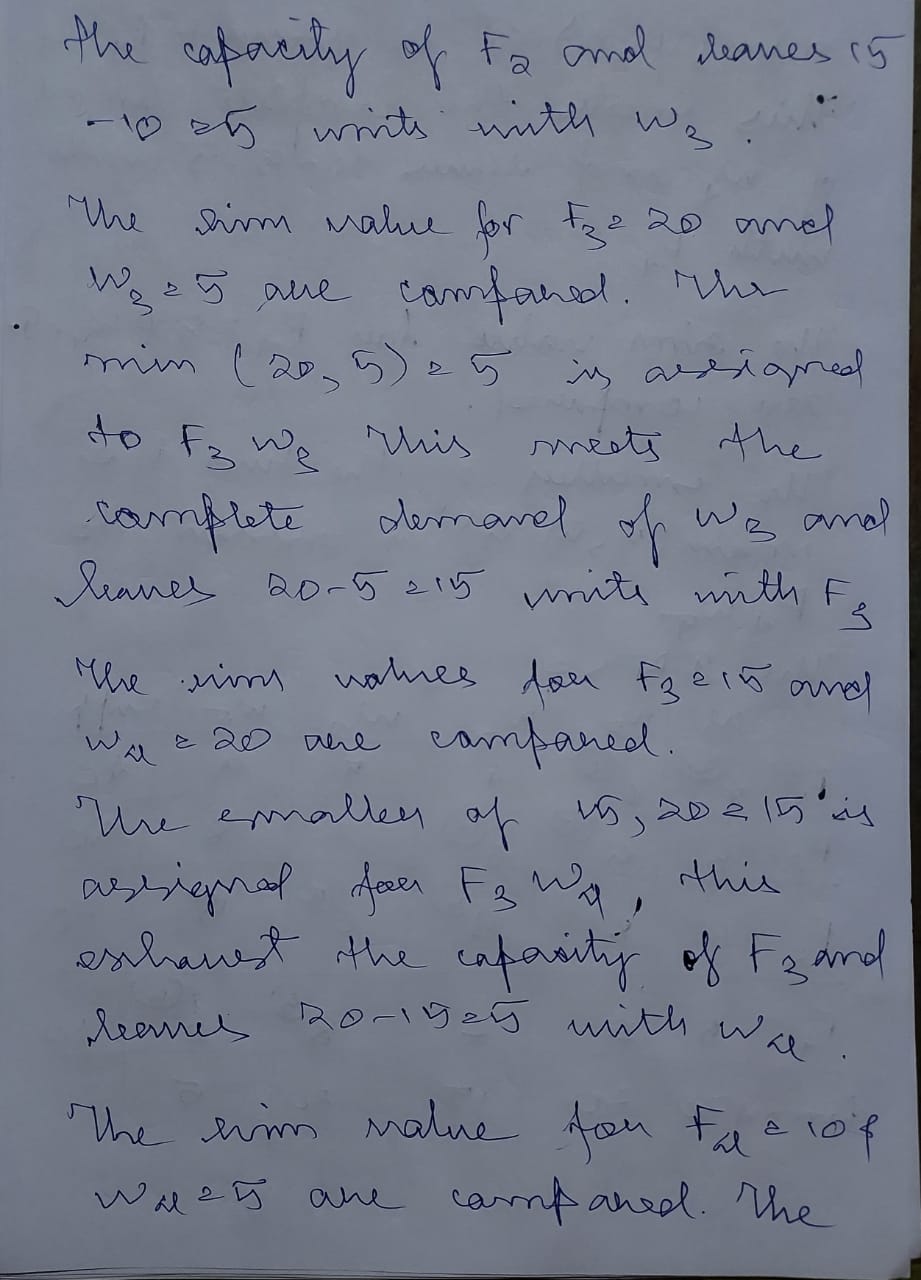 the capacity of F2 and leaves 15
-10 = 5 units with W3.
The rim value for F3 = 20 and
W3 = 5 are compared. The
min (20, 5) = 5 is assigned
to F3 W3 This meets the
complete demand of W3 and
leaves 20-5 = 15 units with F3
The rim values for F3 = 15 and
W4 = 20 are compared.
The smaller of 15, 20 = 15 is
assigned for F3 W4, this
exhaust the capacity of F3 and
leaves 20-15=5 with W4.
The rim value for F4 = 10 &
W4 = 5 are compared. The